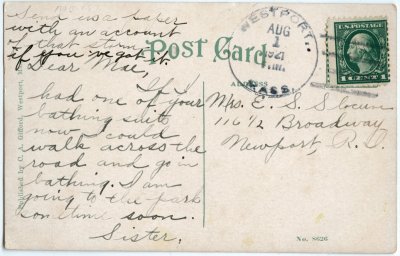 Send us a paper
with an account
of that storm
if you've got it.
Post Card
WESTPORT
AUG
1
1921
MASS.
U.S. POSTAGE
1 CENT 1
Dear Mae,
If I
had one of your
bathing suits
now I could
walk across the
road and go in
bathing. I am
going to the park
some time soon.
Sister.
Mrs. E. S. Slocum
116½ Broadway
Newport, R. I.
Published by C. A. Gifford, Westport,
No. 8626